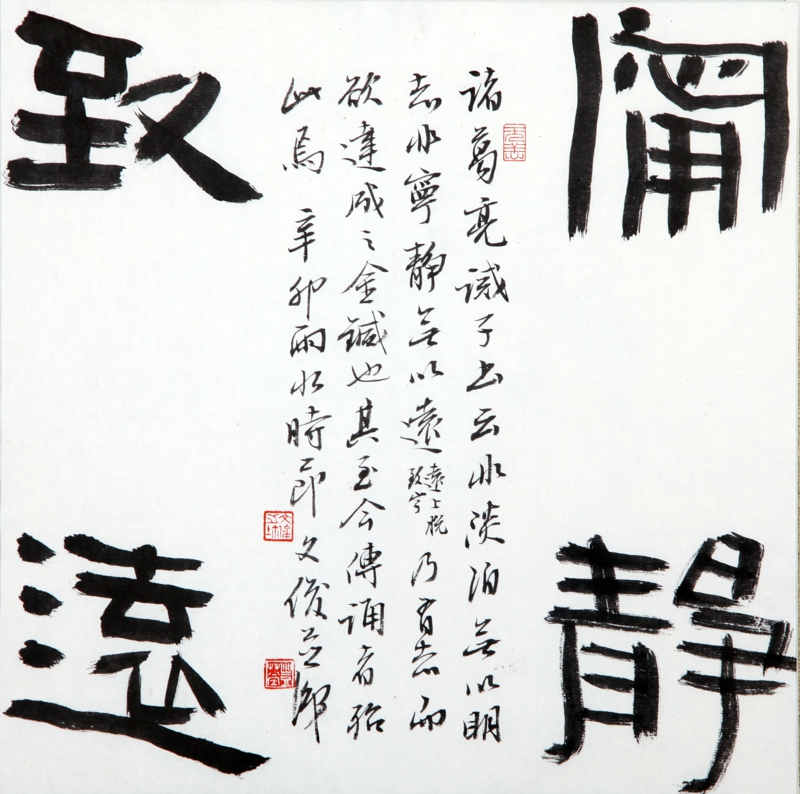 寧靜
諸葛亮誡子書云非淡泊無以明
志非寧靜無以遠
遠上脫
致字
乃有志而
欲達成之金鍼也其至今傳誦者殆
此焉 辛卯雨水時節 文俊並
致遠